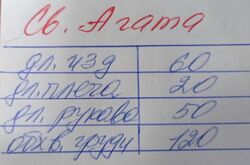 Св. Агата
дл. изд 60
дл. плеча 20
дл. рукава 50
обхв. груди 120